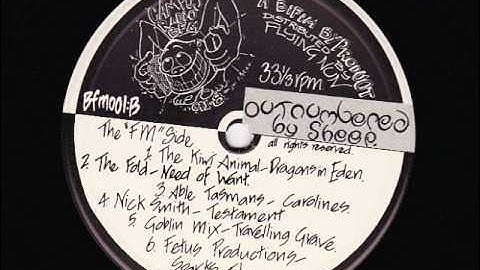 CAMPUS
RADIO
BFM
A BFM PRODUCT
DISTRIBUTED BY
FLYING NUN
33⅓ rpm
Bfm001:B
OUTNUMBERED
by Sheep
all rights reserved.
The "FM" Side
1. The Kiwi Animal - Dragons in Eden.
2. The Fold - Need of Want.
3 Able Tasmans - Carolines.
4 Nick Smith - Testament
5. Goblin Mix - Travelling Grave.
6. Fetus Productions -